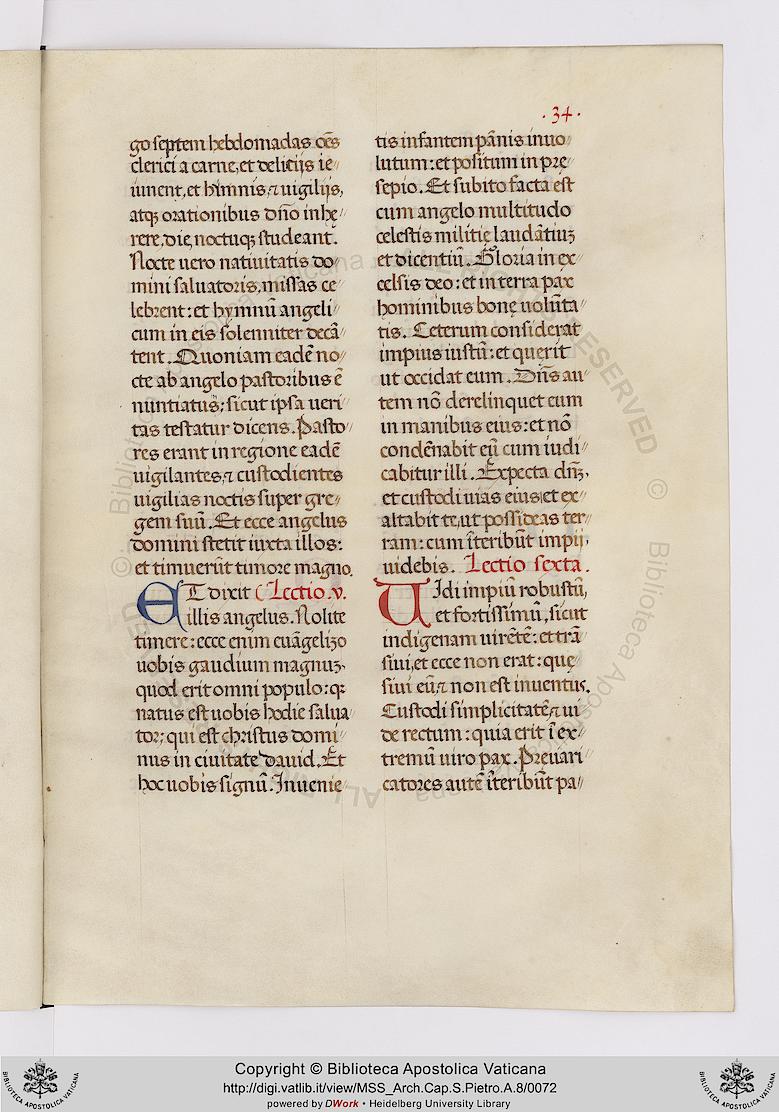 ·34·
go septem hebdomadas oēs
clerici a carne, et delitijs ie//
iunent, et himnis, ⁊ uigilijs,
atqꝫ orationibus dn̄o inhę//
rere, die, noctuqꝫ studeant.
Nocte uero natiuitatis do//
mini saluatoris, missas ce//
lebrent: et hymnū angeli//
cum in eis solenniter decā//
tent. Quoniam eadē no//
cte ab angelo pastoribus ē
nuntiatus; sicut ipsa ueri//
tas testatur dicens. Pasto//
res erant in regione eadē
uigilantes, ⁊ custodientes
uigilias noctis super gre//
gem suū. Et ecce angelus
domini stetit iuxta illos:
et timuerūt timore magno.
ET dixit (Lectio .v.
illis angelus. Nolite
timere: ecce enim euāgelizo
uobis gaudium magnuꝫ,
quod erit omni populo: qꝛ
natus est uobis hodie salua//
tor; qui est christus domi//
nus in ciuitate dauid. Et
hoc uobis signū. Inuenie//
tis infantem pānis inuo//
lutum: et positum in prę//
sepio. Et subito facta est
cum angelo multitudo
celestis militię laudātiuꝫ
et dicentiū. Gloria in ex//
celsis deo: et in terra pax
hominibus bonę uolūta//
tis. Ceterum considerat
impius iustū: et querit
ut occidat eum. Dn̄s au//
tem nō derelinquet eum
in manibus eius: et nō
condēnabit eū cum iudi//
cabitur illi. Expecta dn̄ꝫ,
et custodi uias eius, et ex//
altabit te, ut possideas ter//
ram: cum īteribūt impij,
uidebis. Lectio sexta.
UIdi impiū robustū,
et fortissimū, sicut
indigenam uirētē: et trā//
siui, et ecce non erat: quę//
siui eū, ⁊ non est inuentus.
Custodi simplicitatē, ⁊ ui//
de rectum: quia erit ī ex//
tremū uiro pax. Preuari//
catores autē īteribūt pa//
Copyright © Biblioteca Apostolica Vaticana
http://digi.vatlib.it/view/MSS_Arch.Cap.S.Pietro.A.8/0072
powered by DWork • Heidelberg University Library
BIBLIOTECA APOSTOLICA VATICANA
BIBLIOTECA APOSTOLICA VATICANA